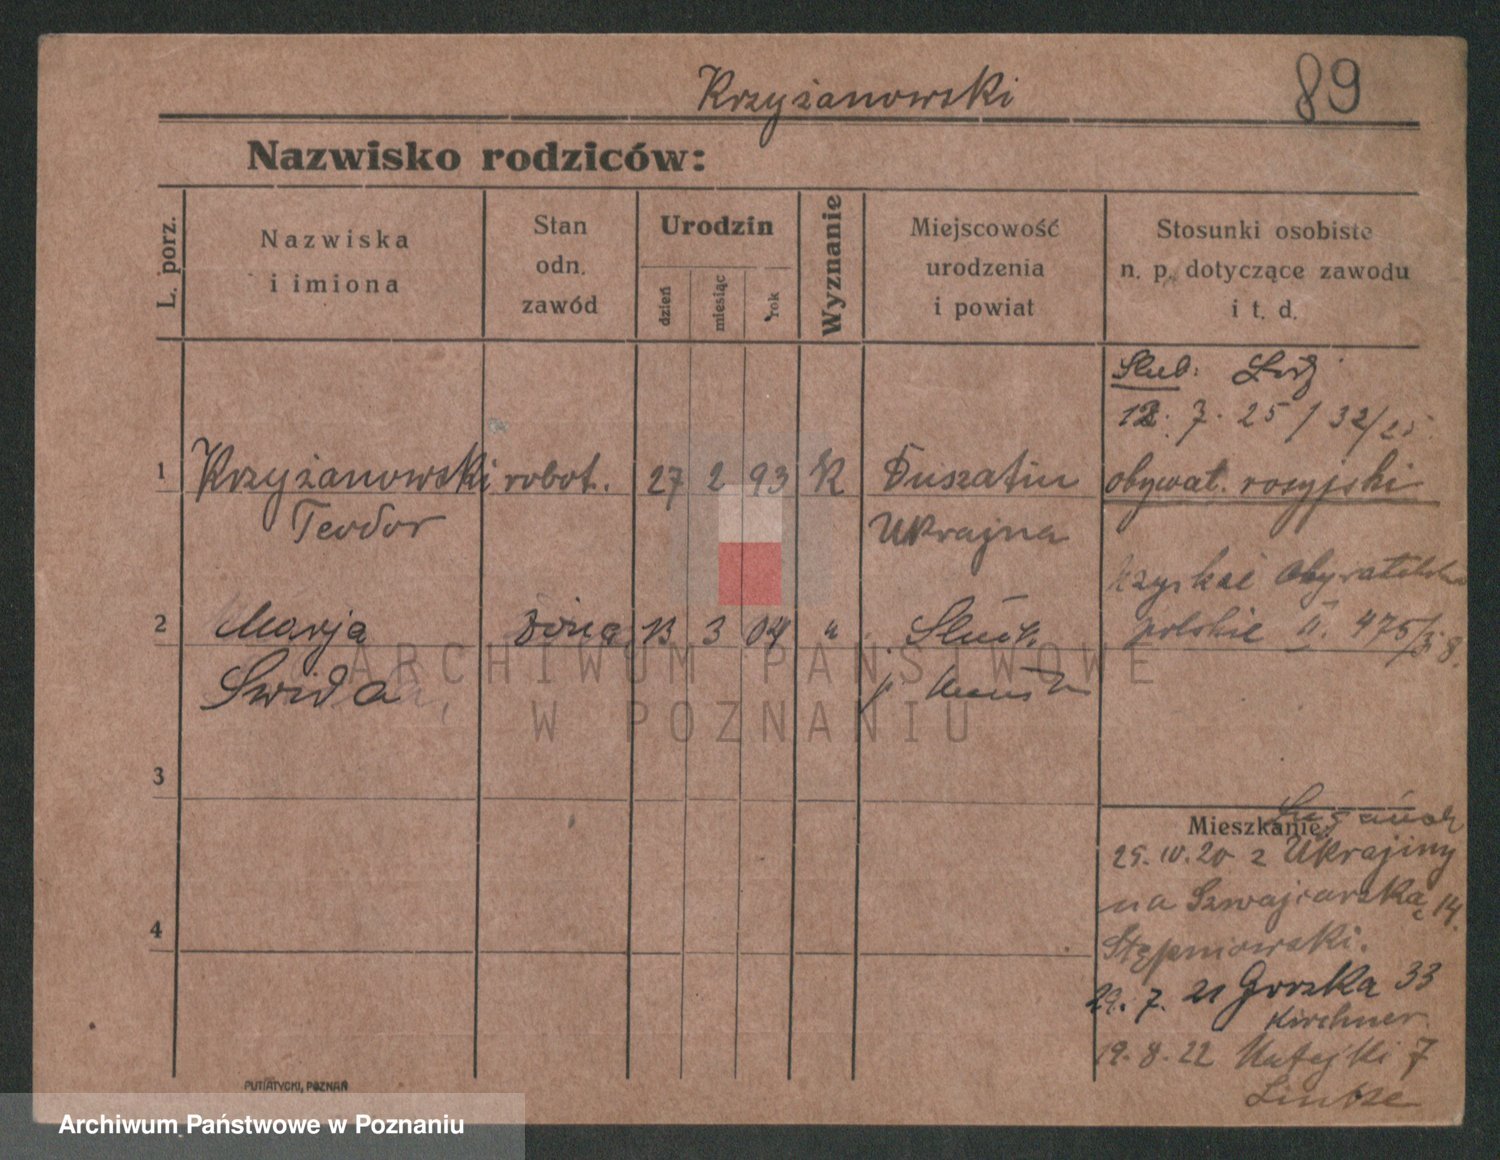 Krzyżanowski
89
Nazwisko rodziców:
L. porz.
Nazwiska
i imiona
Stan
odn.
zawód
Urodzin
dzień
miesiąc
rok
Wyznanie
Miejscowość
urodzenia
i powiat
Stosunki osobiste
n. p. dotyczące zawodu
i t. d.
Ślub:
12. 7. 25 / 32/25
1 Krzyżanowski robot. 27 2 93 K obywat. rosyjski
Teodor Ukrajna
2 Marja żona 13 3 04 "
polskie II. 475/
Swida
3
4
Mieszkanie:
25. IV. 20 z Ukrajiny
na Szwajcarską 14.
Stępniowski.
29. 7. 21 Gorzka 33
Kirchner
19. 8. 22 Matejki 7
PUTIATYCKI, POZNAŃ
ARCHIWUM PAŃSTWOWE
W POZNANIU
Archiwum Państwowe w Poznaniu